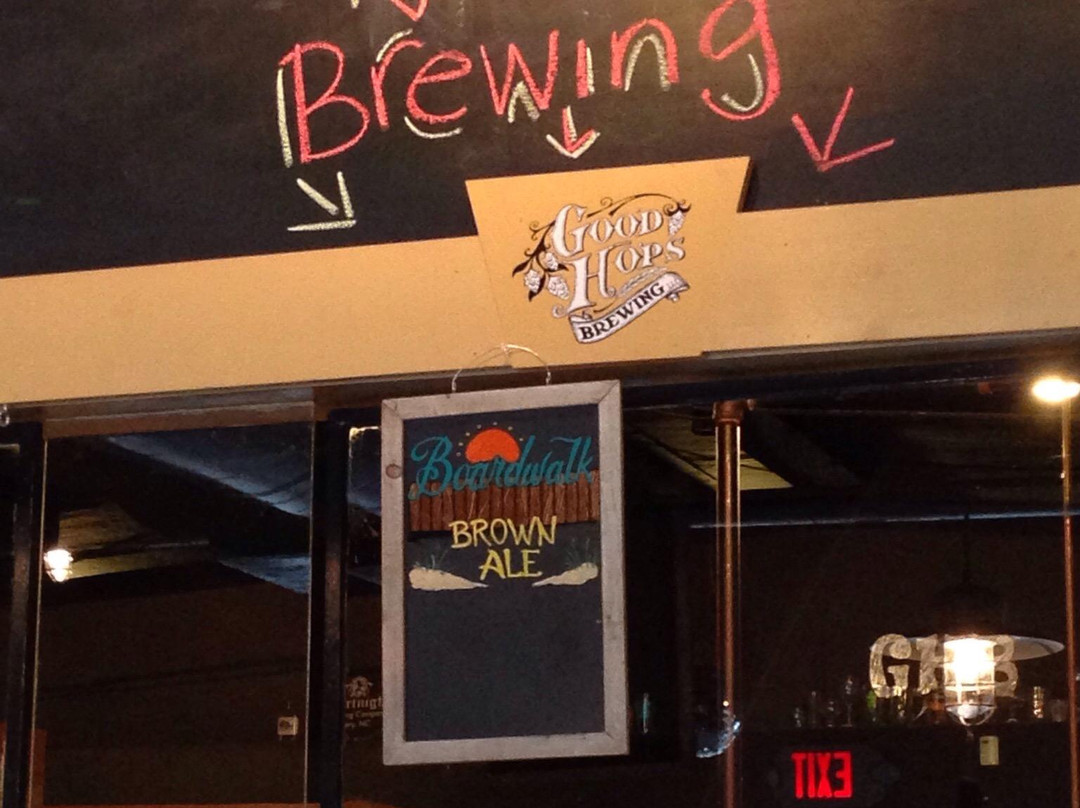 Brewing
GOOD
HOPS
BREWING
Boardwalk
BROWN
ALE
GHB
EXIT